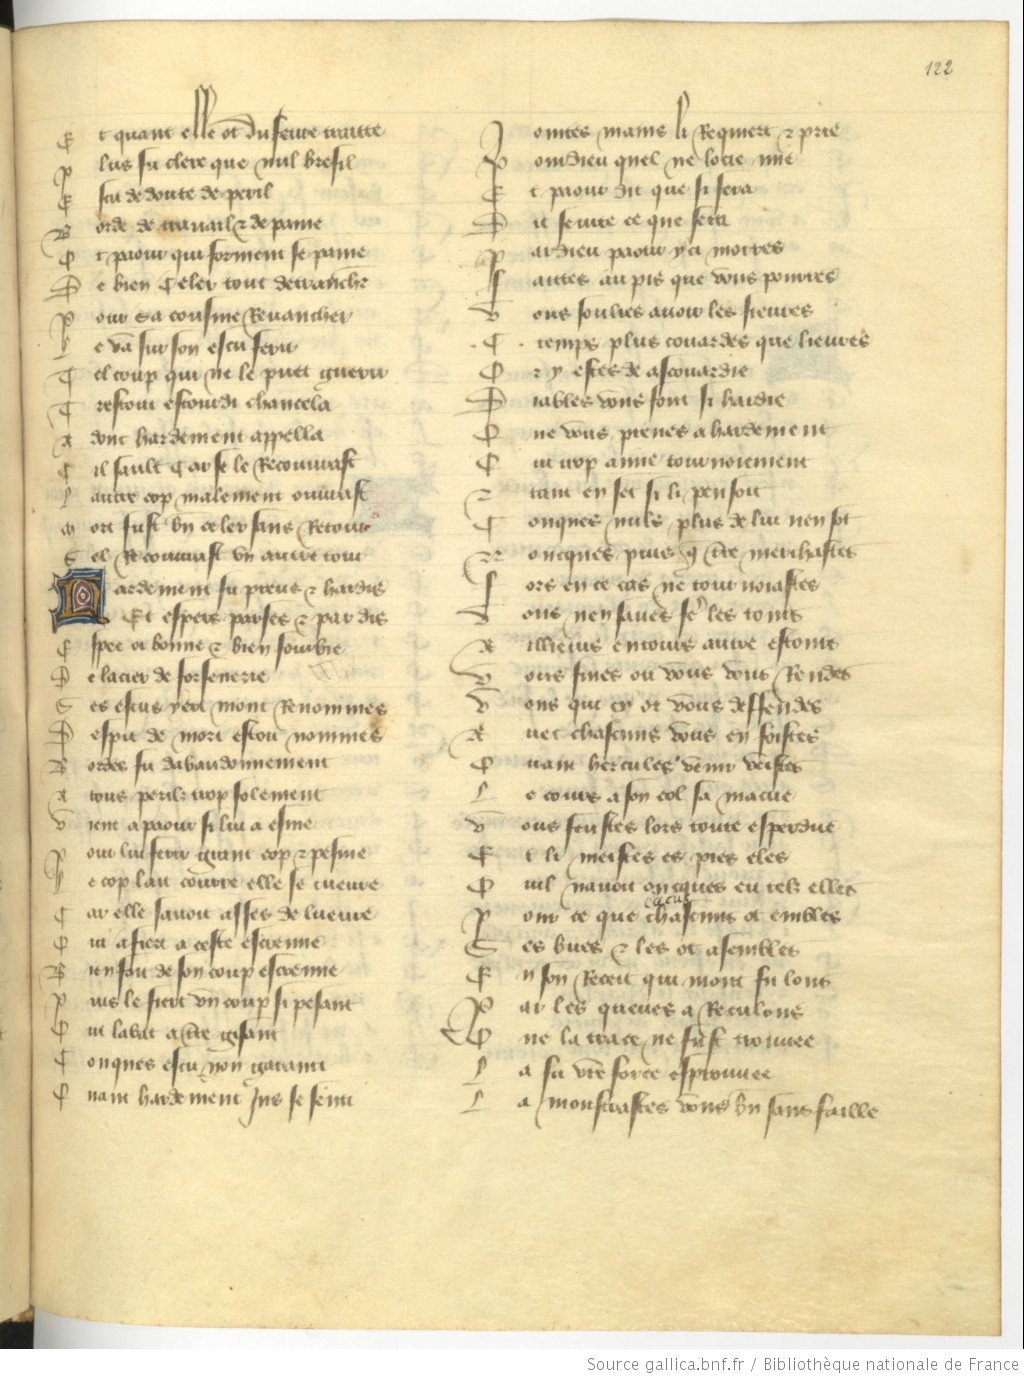 122
Et quant elle ot du feutre traitte
Plus fu clere que nul bresil
Escu de doute de peril
Borde de travail & de paine
Et paour qui forment se paine
De bien Celer tout detranche
Pour sa cousine Revancher
Le va sur son escu ferir
Tel coup quil ne le puet guerir
Trestout estourdi chancela
Adont hardement appella
Cil sault Car se le Recouvrast
Lautre cop malement ouvrast
Mort fust bn celer sans Retour
Sel Recouvrast vn autre tour
Hardement fu preus & hardis
Et espers par fes & par dis
Espee ot bonne & bien fourbie
De lacier de forsenerie
Ses escus yert mont Renommes
Despit de mort estoit nommes
Bordes fu dabandonnement
A tous perilz trop folement
Vient a paour si lui a esme
Pour lui ferir grant cop & pesme
Le cop lait courre elle se cueuvre
Car elle savoit asses de lueuvre
Qui afiert a ceste escremie
Bien sou de son coup escremie
Puis le fiert vn coup si pesant
Quil labat a tre gisant
Conques escu non garanti
Quant hardement Jus se senti
Jointes mains li Requiert & prie
Pour dieu quel ne locie mie
Et paour dit que si fera
Dit seurte ce que sera
Par dieu paour yci morres
Faittes au pis que vous pourres
Vous soulies avoir les fievres
.C. temps plus couardes que lievres
Or y estes de ascouardie
Diables vous font si hardie
Que vous prenes a hardement
Qui trop aime tournoiement
& tant en scet si li pensoit
Conques nulz plus de lui nen sot
Noncques puis q tre merchastes
Fors en ce cas ne tournoiastes
Vous nen saves fe les tours
Aillieurs en tous autre estours
Vous fuies ou vous vous Rendes
Vous qui cy ot vous deffendes
Avec chascuns vous en foistes
Quant hercules venir veistes
Le cours a son col sa macue
Vous feustes lors toute esperdue
Et li meistes es pies eles
Quil navoit oncques eu telz elles
cacus
Pour ce que chascuns ot embles
Ses bues & les ot asembles
En son Recoit qui mont fu lons
Par les queues a Reculons
Que la trace ne fust trouvee
La fu vtre force esprouvee
La monstrastes vous bn sans faille
Source gallica.bnf.fr / Bibliothèque nationale de France